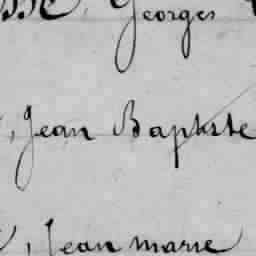 Georges
, Jean Baptiste
, Jean marie